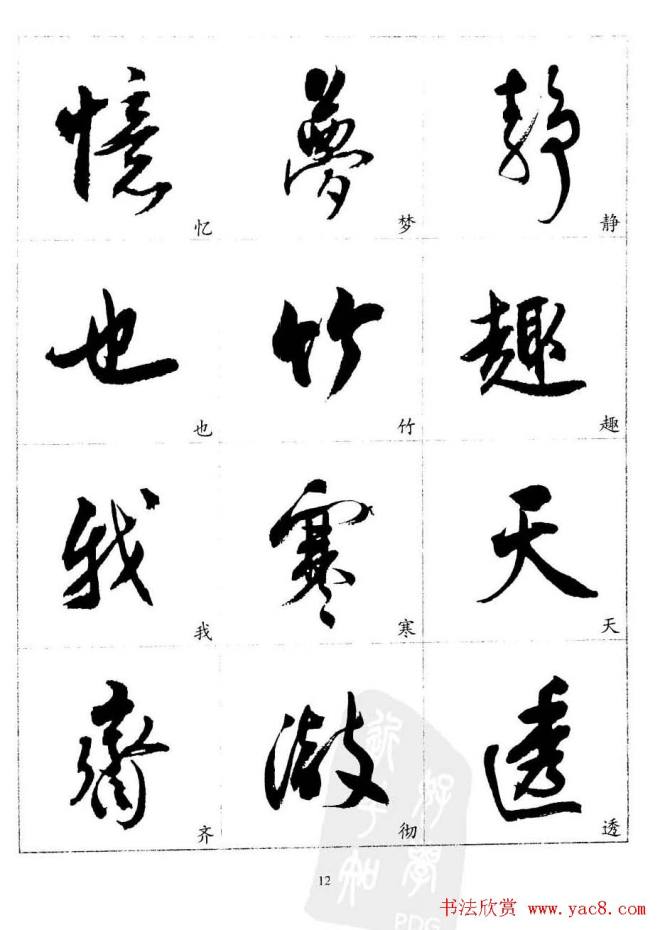 憶 夢 靜
忆 梦 静
也 竹 趣
也 竹 趣
我 寒 天
我 寒 天
齊 徹 透
齐 彻 透
12
书法欣赏 www.yac8.com